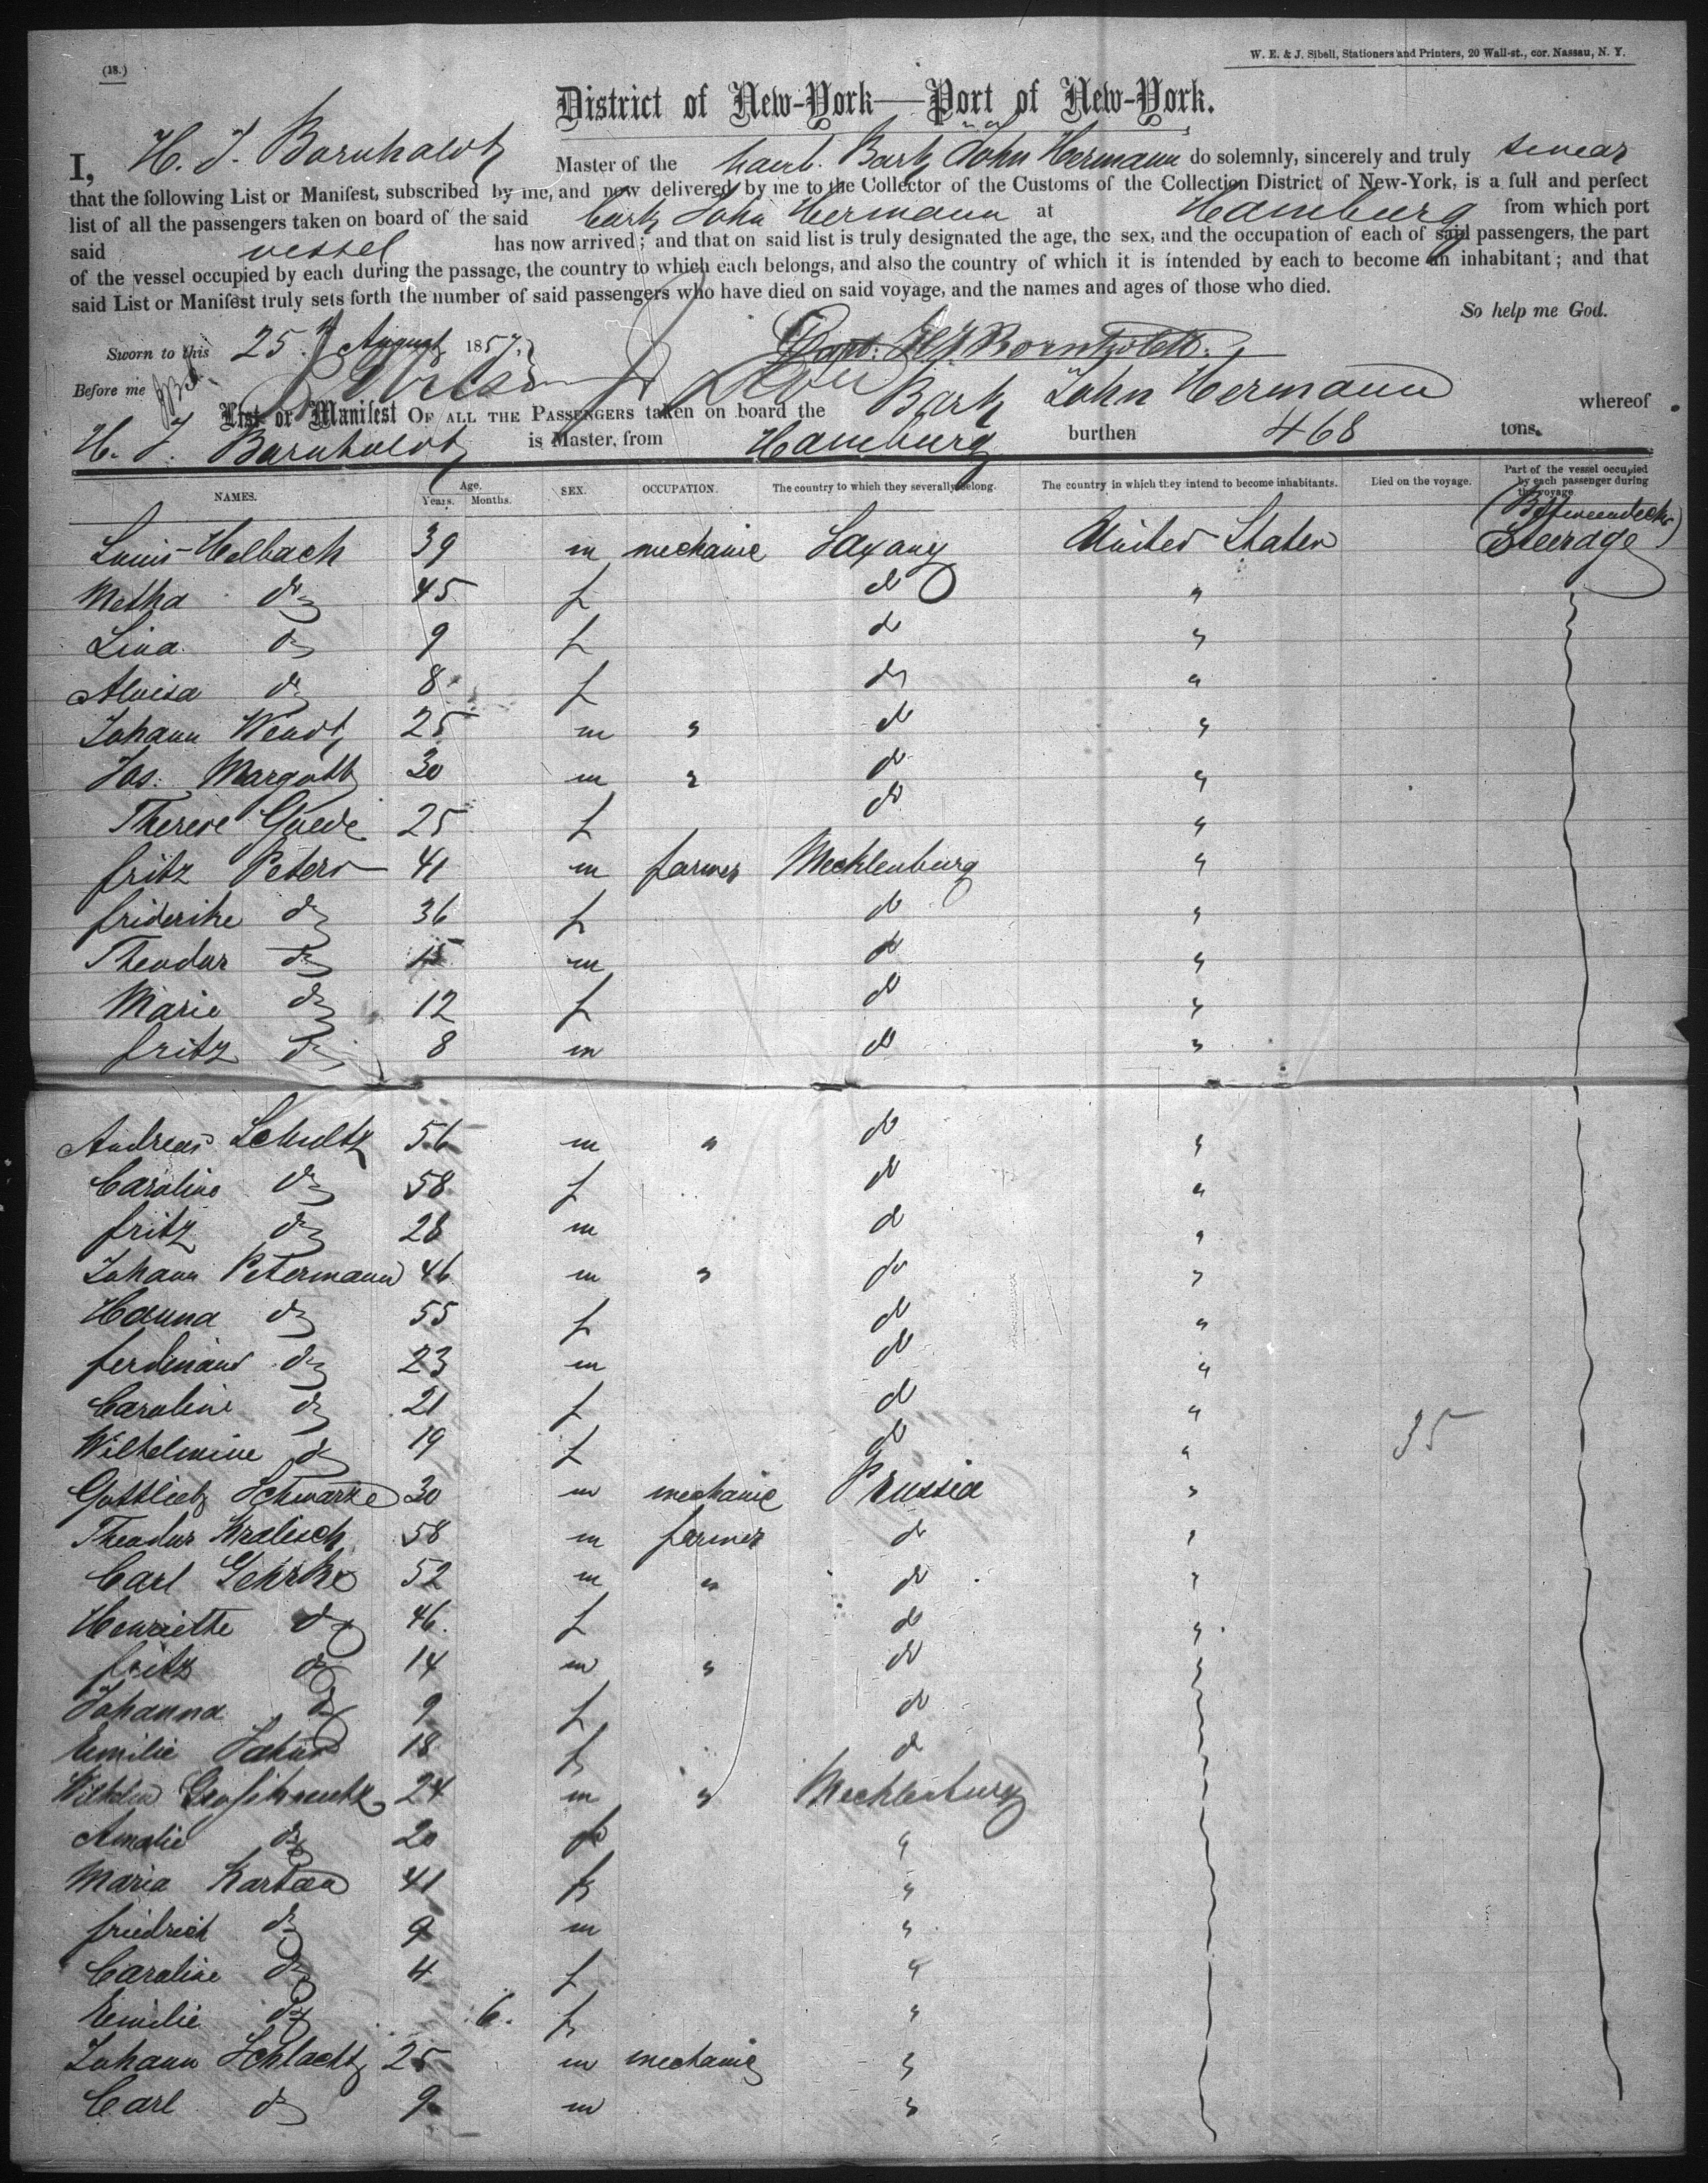 (18.)
W. E. & J. Sibell, Stationers and Printers, 20 Wall-st., cor. Nassau, N. Y.
District of New-York—Port of New-York.
I, H. J. Barnholdt Master of the hamb. Bark John Hermann do solemnly, sincerely and truly swear
that the following List or Manifest, subscribed by me, and now delivered by me to the Collector of the Customs of the Collection District of New-York, is a full and perfect
list of all the passengers taken on board of the said bark John Hermann at Hamburg from which port
said vessel has now arrived; and that on said list is truly designated the age, the sex, and the occupation of each of said passengers, the part
of the vessel occupied by each during the passage, the country to which each belongs, and also the country of which it is intended by each to become an inhabitant; and that
said List or Manifest truly sets forth the number of said passengers who have died on said voyage, and the names and ages of those who died.
So help me God.
Sworn to this 25 August 1857
Before me
List or Manifest OF ALL THE PASSENGERS taken on board the Bark John Hermann whereof
H. J. Barnholdt is Master, from Hamburg burthen 468 tons.
NAMES. Age. Years. Months. SEX. OCCUPATION. The country to which they severally belong. The country in which they intend to become inhabitants. Died on the voyage. Part of the vessel occupied by each passenger during the voyage.
Louis Helbach 39 m mechanic Saxany United States (Betweendecks) Steerage
Metha do 45 f do "
Lina do 9 f do "
Aloisa do 8 f do "
Johann Wendt 25 m " do "
Jos. Margott 30 m " do "
Therese Guede 25 f do "
fritz Peters 41 m farmer Mecklenburg "
friderike do 36 f do "
Theodor do 15 m do "
Marie do 12 f do "
fritz do 8 m do "
Andreas Schultz 56 m " do "
Caroline do 58 f do "
fritz do 28 m do "
Johann Petermann 46 m " do "
Hanna do 55 f do "
ferdinand do 23 m do "
Caroline do 21 f do "
Wilhelmine do 19 f do "
35
Gottlieb Schwarze 30 m mechanic Prussia "
Theodor Kralisch 58 m farmer do "
Carl Gehrke 52 m " do "
Henriette do 46 f do "
fritz do 14 m " do "
Johanna do 9 f do
Emilie 18 f do
Wilhelm 24 m " Mecklenburg
Amalie do 20 f "
Maria 41 f "
friedrich do 9 m "
Caroline do 4 f "
Emilie do 6 f "
Johann Schlacht 25 m mechanic "
Carl do 9 m "